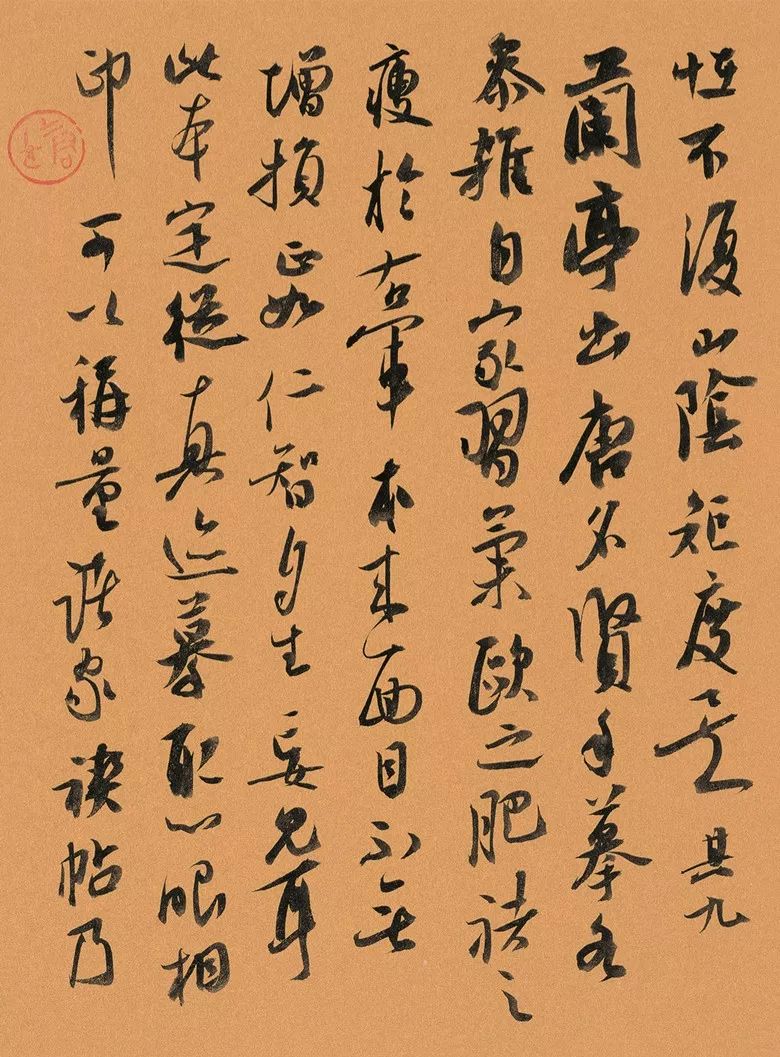 恒不復山陰矩度是 其九
蘭亭出唐名賢手摹各
参雜自家習氣歐之肥褚之
瘦於右軍本来面目不無
增損正如仁智自生妄見耳
此本定從真迹摹取心眼相
印可以稱量諸家禊帖乃